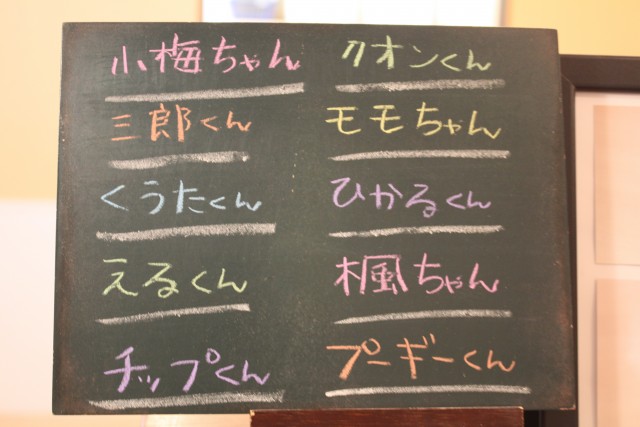 小梅ちゃん
クオンくん
三郎くん
モモちゃん
くうたくん
ひかるくん
えるくん
楓ちゃん
チップくん
プーギーくん